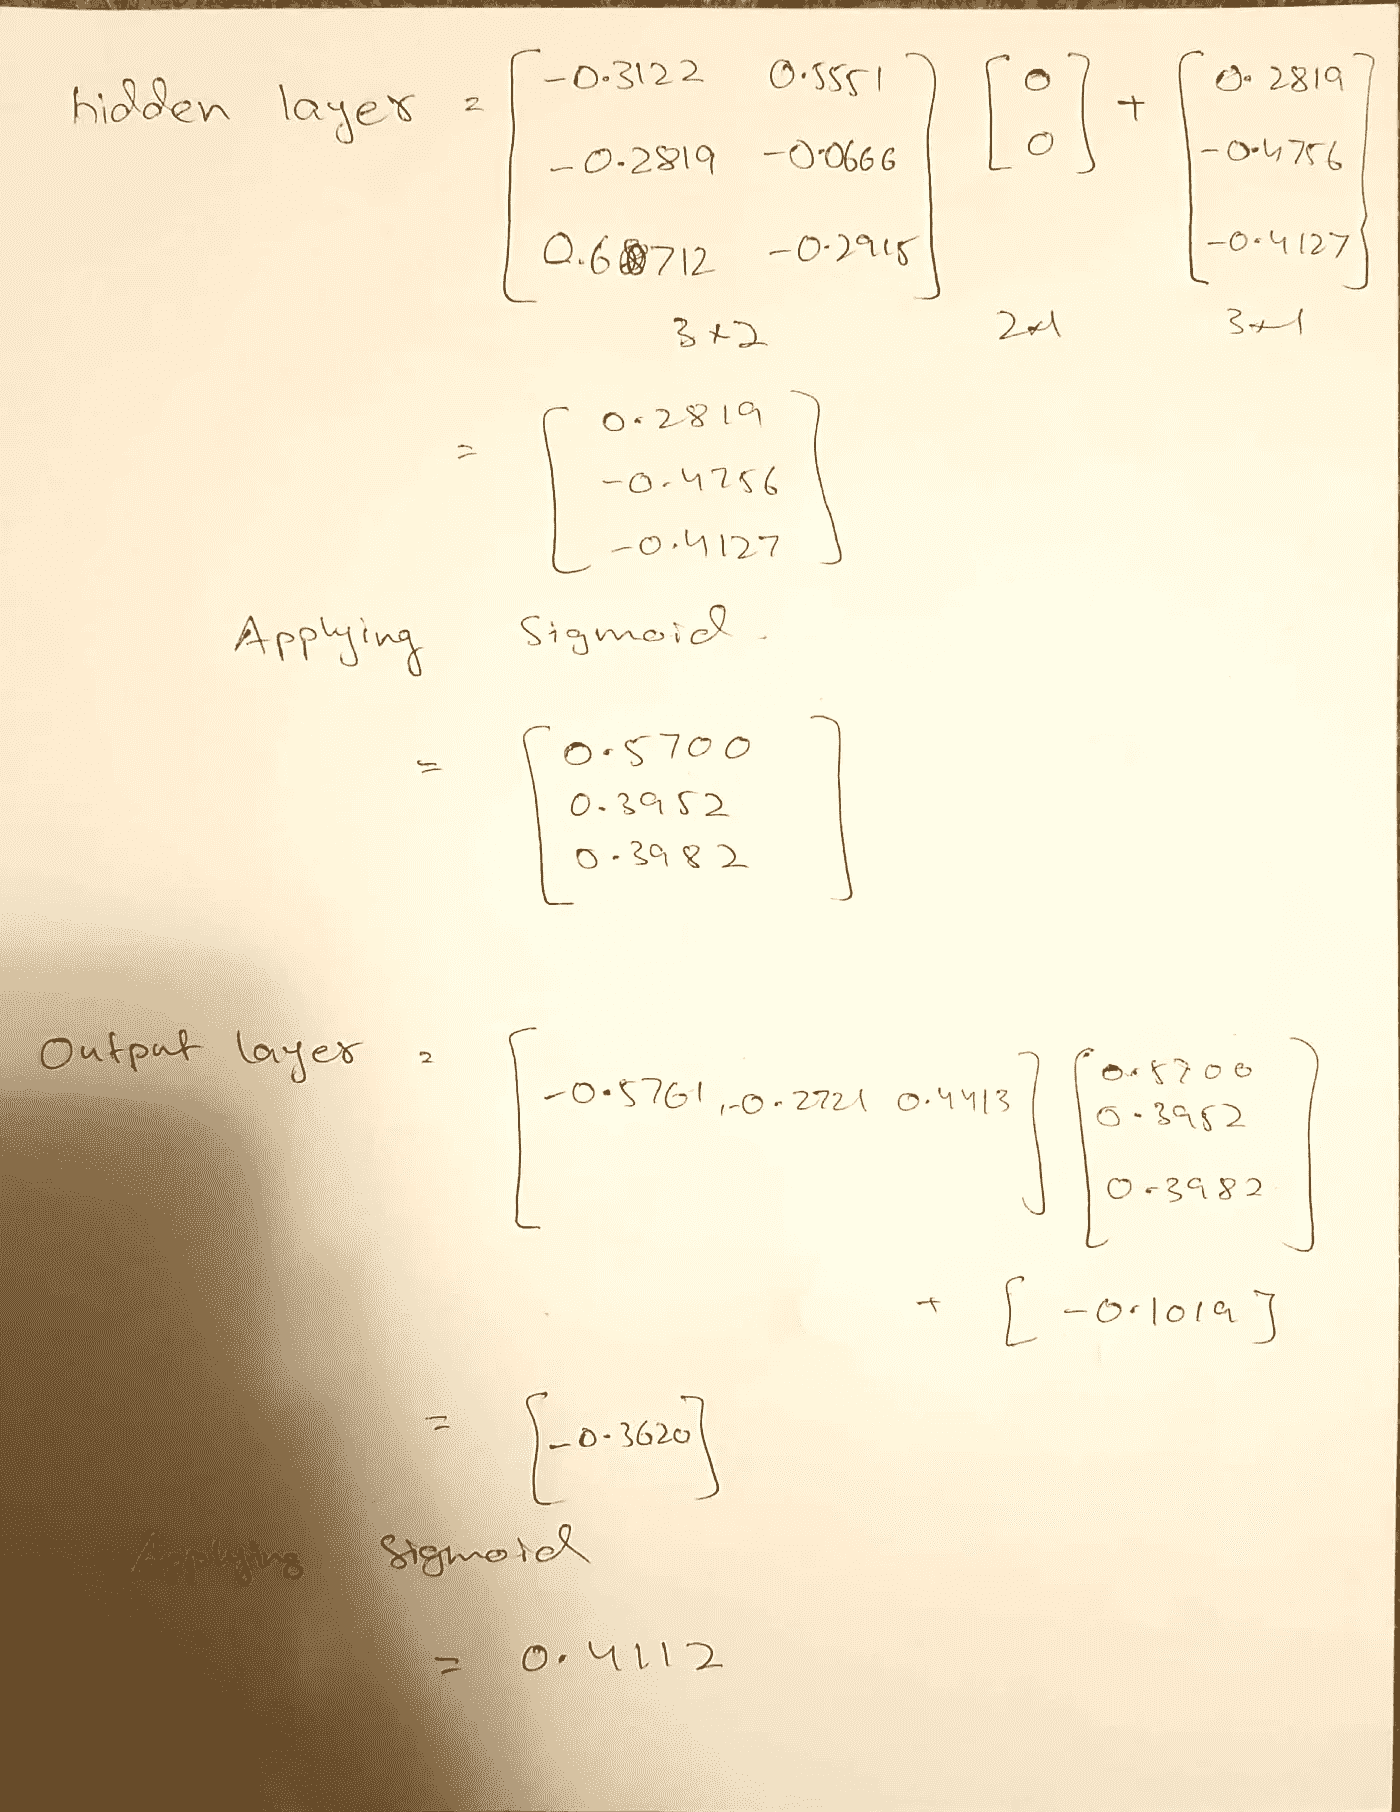 hidden layer = [ -0.3122 0.5551 ] [ 0 ] + [ 0.2819 ]
[ -0.2819 -0.0666 ] [ 0 ] [ -0.4756 ]
[ 0.6712 -0.2915 ] [ -0.4127 ]
3×2 2×1 3×1
= [ 0.2819 ]
[ -0.4756 ]
[ -0.4127 ]
Applying Sigmoid.
= [ 0.5700 ]
[ 0.3952 ]
[ 0.3982 ]
Output layer = [ -0.5761, -0.2721 0.4413 ] [ 0.5700 ]
[ 0.3952 ]
[ 0.3982 ]
+ [ -0.1019 ]
= [ -0.3620 ]
Applying Sigmoid
= 0.4112